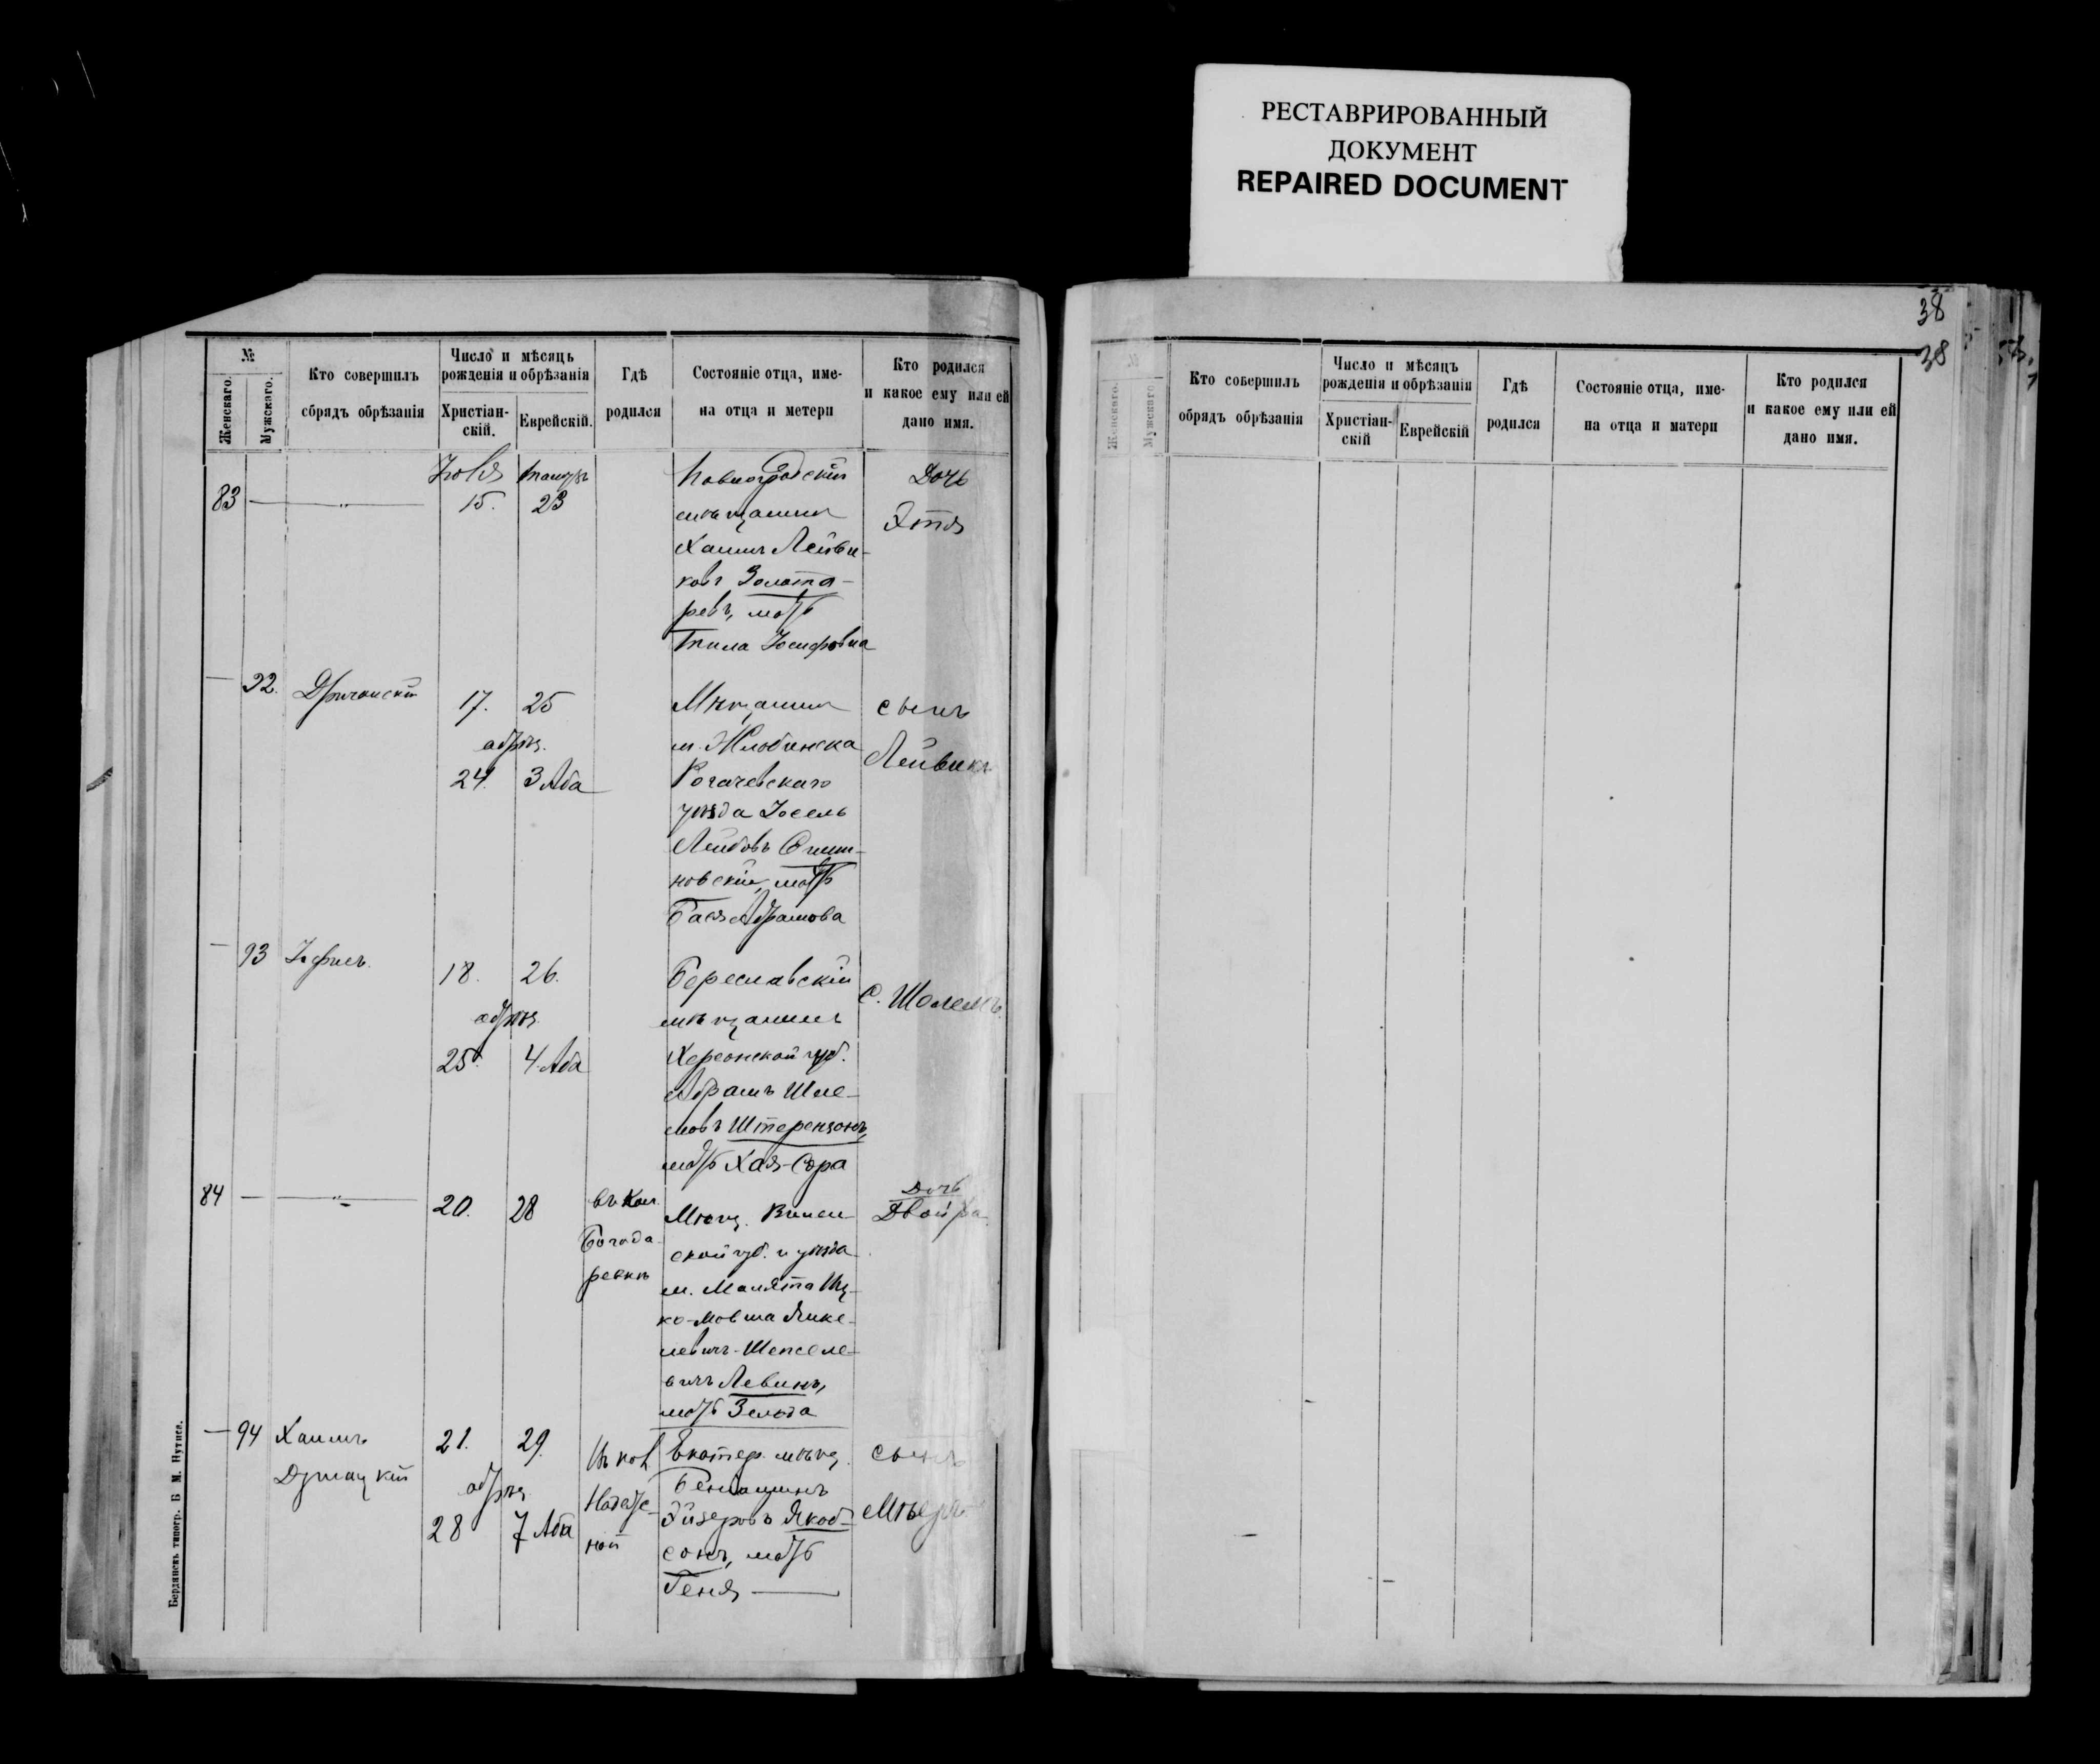 РЕСТАВРИРОВАННЫЙ
ДОКУМЕНТ
REPAIRED DOCUMENT
№
Женскаго.
Мужскаго.
Кто совершилъ
сбрядъ обрѣзанія
Число и мѣсяцъ
рожденія и обрѣзанія
Христіан-
скій.
Еврейскій.
Гдѣ
родился
Состояніе отца, име-
на отца и метери
Кто родился
и какое ему или ей
дано имя.
83
Іюля
15.
23
мѣщанинъ
Хаимъ Лейви-
ковъ Золота-
ревъ, мать
Іосифовна
Дочь
Этля
92.
17.
25
обрѣз.
24.
3 Аба
Мѣщанинъ
м. Жлобинска
Рогачевскаго
уѣзда Іосель
Лейбовъ
новскій, мать
Бася Абрамова
сынъ
Лейвикъ
93
18.
26.
обрѣз.
25.
4. Аба
Береславскій
мѣщанинъ
Херсонской губ.
Абрамъ Шле-
мовъ Штерензонъ,
мать Хая-Сора
С. Шолемъ.
84
20.
28
въ Кол.
Богода-
ровкѣ
Мѣщ. Вилен-
ской губ. и уѣзда
м. Малята Иц-
ко-Мовша Янке-
левичъ-Шепселе-
вичъ Левинъ,
мать Зельда
Дочь
Двойра.
94
Хаимъ
21.
29.
обрѣз.
28
7 Аба
Въ кол.
Надеж-
ной
Екатер. мѣщ.
Беніаминъ
Эйзеровъ Якоб-
сонъ, мать
Геня
сынъ
Мѣеръ
Бердянскъ типогр. Б М. Нутиса.
38
38
№
Женскаго.
Мужскаго
Кто совершилъ
обрядъ обрѣзанія
Число и мѣсяцъ
рожденія и обрѣзанія
Христіан-
скій
Еврейскій
Гдѣ
родился
Состояніе отца, име-
на отца и матери
Кто родился
и какое ему или ей
дано имя.